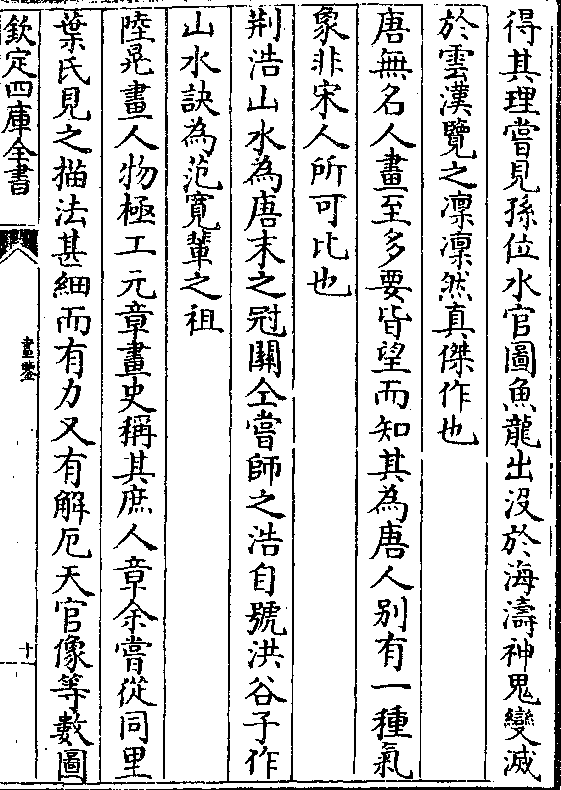 得其理嘗見孫位水官圖魚龍出没於海濤神鬼變滅
於雲漢覽之凛凛然真傑作也
唐無名人畫至多要皆望而知其為唐人别有一種氣
象非宋人所可比也
荆浩山水為唐末之冠關仝嘗師之浩自號洪谷子作
山水訣為范寛輩之祖
陸晃畫人物極工元章畫史稱其庶人章余嘗從同里
葉氏見之描法甚細而有力又有解厄天官像等數圖
欽定四庫全書
畫鑒
十